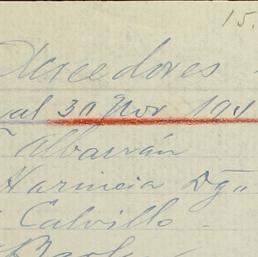 15.
Acreedores
al 30 Nov 191
Albarrán
Harineia Dg"
Calvillo -